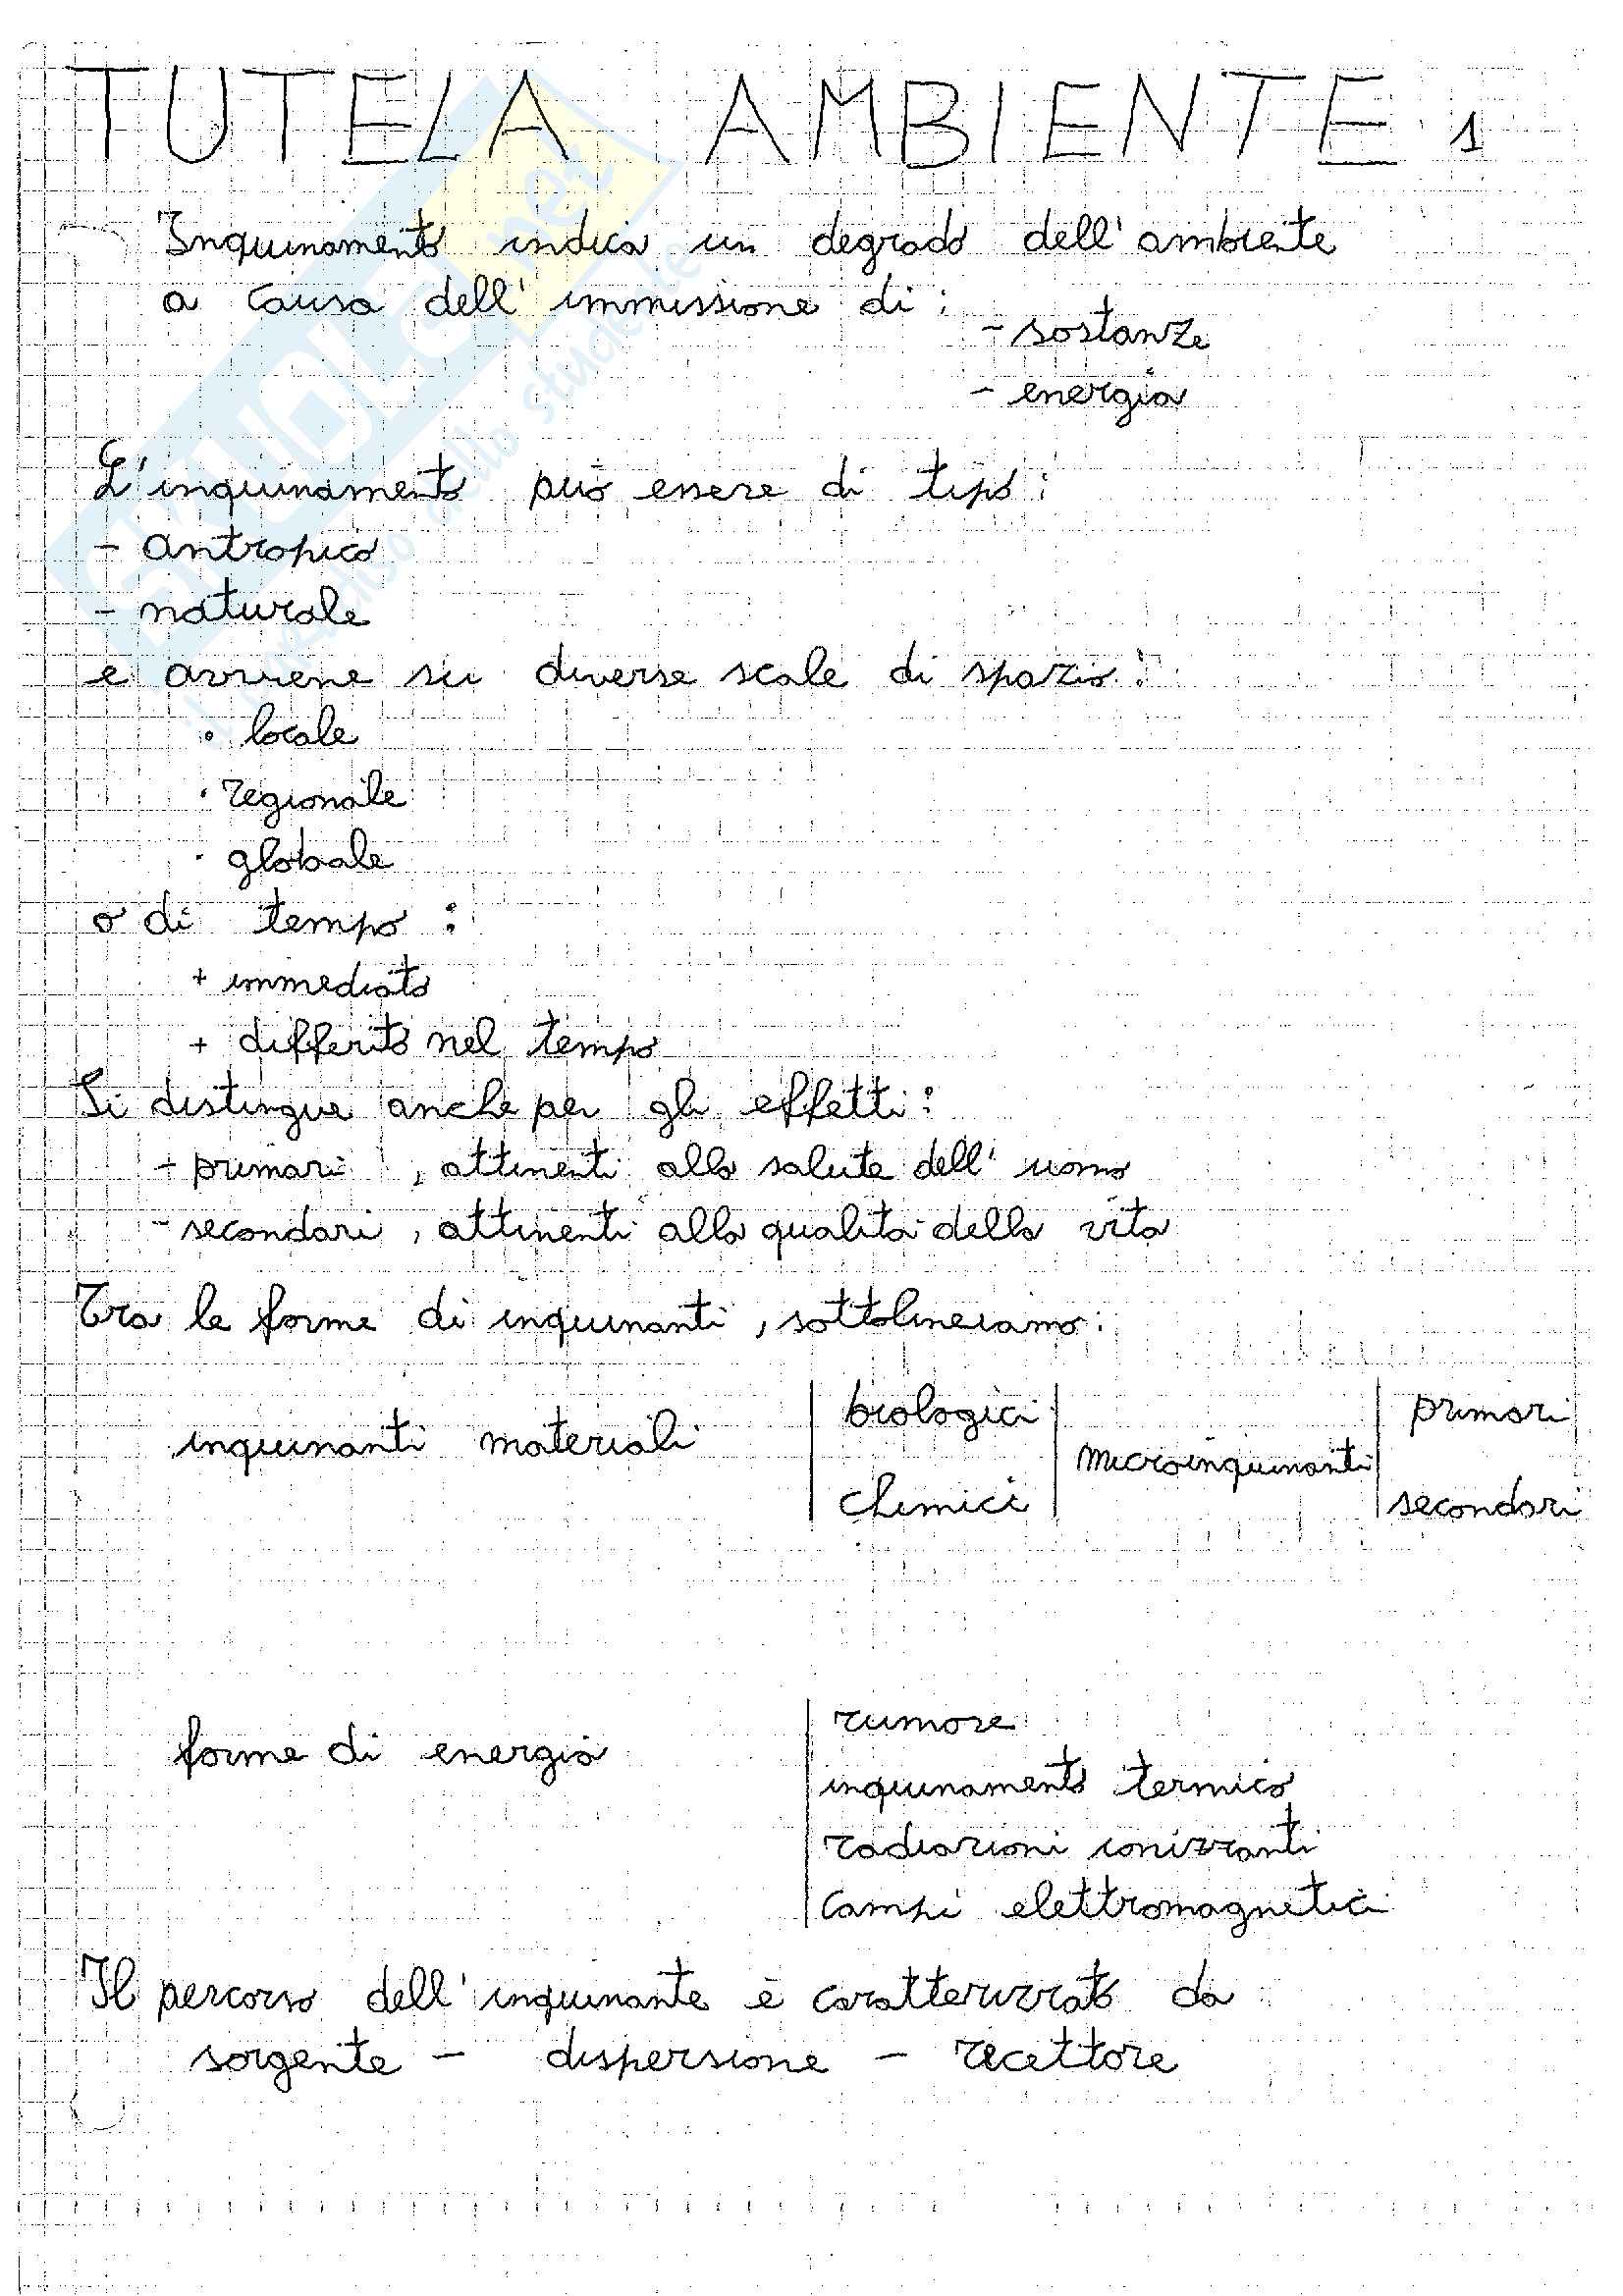 TUTELA AMBIENTE 1
Inquinamento indica un degrado dell'ambiente
a causa dell'immissione di:
- sostanze
- energia
L'inquinamento può essere di tipo:
- antropico
- naturale
e avviene su diverse scale di spazio:
· locale
· regionale
· globale
o di tempo:
+ immediato
+ differito nel tempo
Si distingue anche per gli effetti:
- primari, attinenti alla salute dell'uomo
- secondari, attinenti alla qualità della vita
Tra le forme di inquinanti, sottolineiamo:
inquinanti materiali | biologici | microinquinanti | primari
chimici | secondari
forme di energia | rumore
inquinamento termico
radiazioni ionizzanti
campi elettromagnetici
Il percorso dell'inquinante è caratterizzato da
sorgente - dispersione - recettore